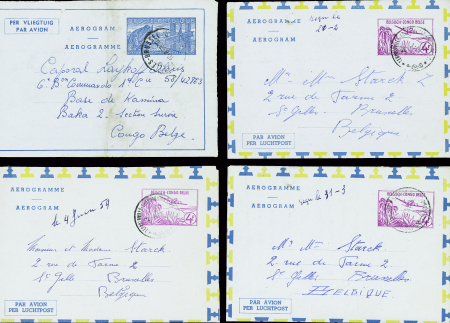 PER VLIEGTUIG
PAR AVION
AEROGRAM
AEROGRAMME
Caporal
6e Bn Commando 1e Cie 58/42783
Base de Kamina
Baka 2. Section Suisse
Congo Belge.
AEROGRAMME
AEROGRAM
Reçu le
20-2
BELGISCH CONGO BELGE
4F
Mr Mme Starck
2 rue de Parme 2
St Gilles Bruxelles
Belgique
PAR AVION
PER LUCHTPOST
AEROGRAMME
AEROGRAM
le 4 59
BELGISCH CONGO BELGE
4F
Monsieur et Madame Starck
2 rue de Parme 2
St Gilles Bruxelles
Belgique
PAR AVION
PER LUCHTPOST
AEROGRAMME
AEROGRAM
reçu le 31-3
BELGISCH CONGO BELGE
4F
Mr Mme Starck
2 rue de Parme 2
St Gilles Bruxelles
BELGIQUE
PAR AVION
PER LUCHTPOST